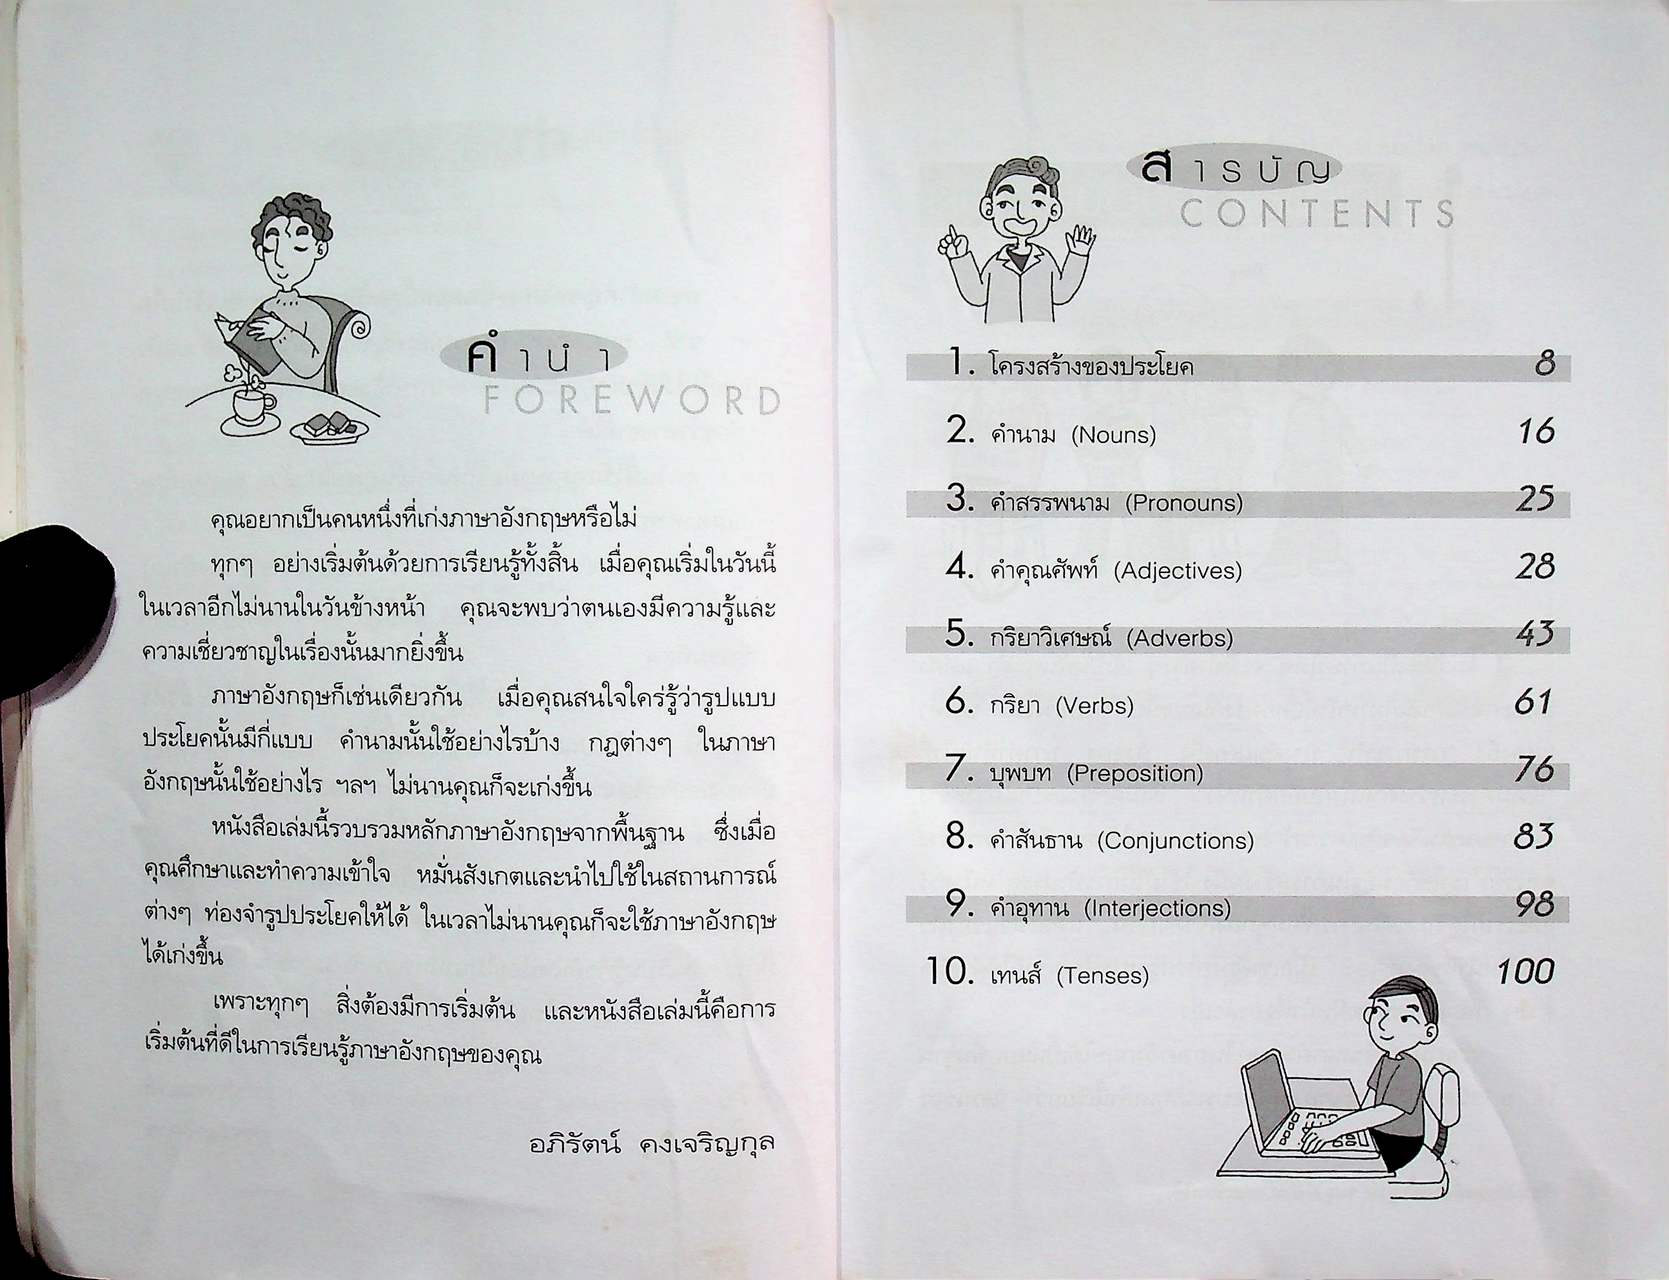 คำนำ
FOREWORD
คุณอยากเป็นคนหนึ่งที่เก่งภาษาอังกฤษหรือไม่
ทุกๆ อย่างเริ่มต้นด้วยการเรียนรู้ทั้งสิ้น เมื่อคุณเริ่มในวันนี้
ในเวลาอีกไม่นานในวันข้างหน้า คุณจะพบว่าตนเองมีความรู้และ
ความเชี่ยวชาญในเรื่องนั้นมากยิ่งขึ้น
ภาษาอังกฤษก็เช่นเดียวกัน เมื่อคุณสนใจใคร่รู้ว่ารูปแบบ
ประโยคนั้นมีกี่แบบ คำนามนั้นใช้อย่างไรบ้าง กฎต่างๆ ในภาษา
อังกฤษนั้นใช้อย่างไร ฯลฯ ไม่นานคุณก็จะเก่งขึ้น
หนังสือเล่มนี้รวบรวมหลักภาษาอังกฤษจากพื้นฐาน ซึ่งเมื่อ
คุณศึกษาและทำความเข้าใจ หมั่นสังเกตและนำไปใช้ในสถานการณ์
ต่างๆ ท่องจำรูปประโยคให้ได้ ในเวลาไม่นานคุณก็จะใช้ภาษาอังกฤษ
ได้เก่งขึ้น
เพราะทุกๆ สิ่งต้องมีการเริ่มต้น และหนังสือเล่มนี้คือการ
เริ่มต้นที่ดีในการเรียนรู้ภาษาอังกฤษของคุณ
อภิรัตน์ คงเจริญกุล
สารบัญ
CONTENTS
1. โครงสร้างของประโยค 8
2. คำนาม (Nouns) 16
3. คำสรรพนาม (Pronouns) 25
4. คำคุณศัพท์ (Adjectives) 28
5. กริยาวิเศษณ์ (Adverbs) 43
6. กริยา (Verbs) 61
7. บุพบท (Preposition) 76
8. คำสันธาน (Conjunctions) 83
9. คำอุทาน (Interjections) 98
10. เทนส์ (Tenses) 100